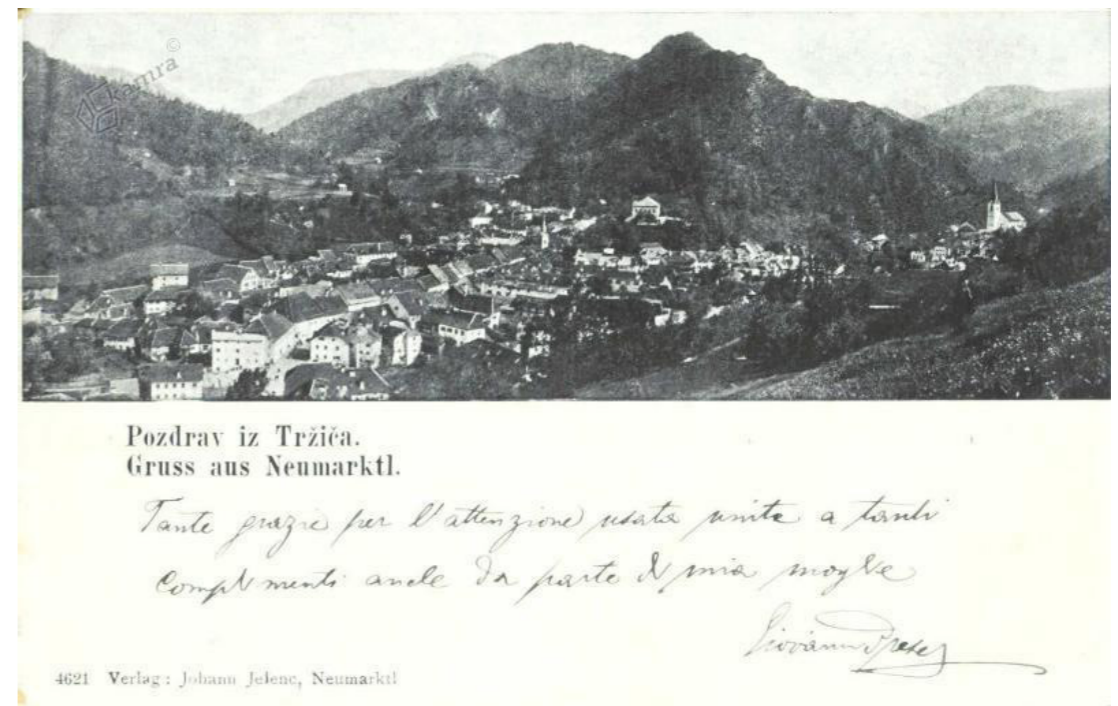 kamra ©
Pozdrav iz Tržiča.
Gruss aus Neumarktl.
Tante grazie per l'attenzione usata unite a tanti
Complimenti anche da parte di mia moglie
Giovanni
4621 Verlag: Johann Jelenc, Neumarktl